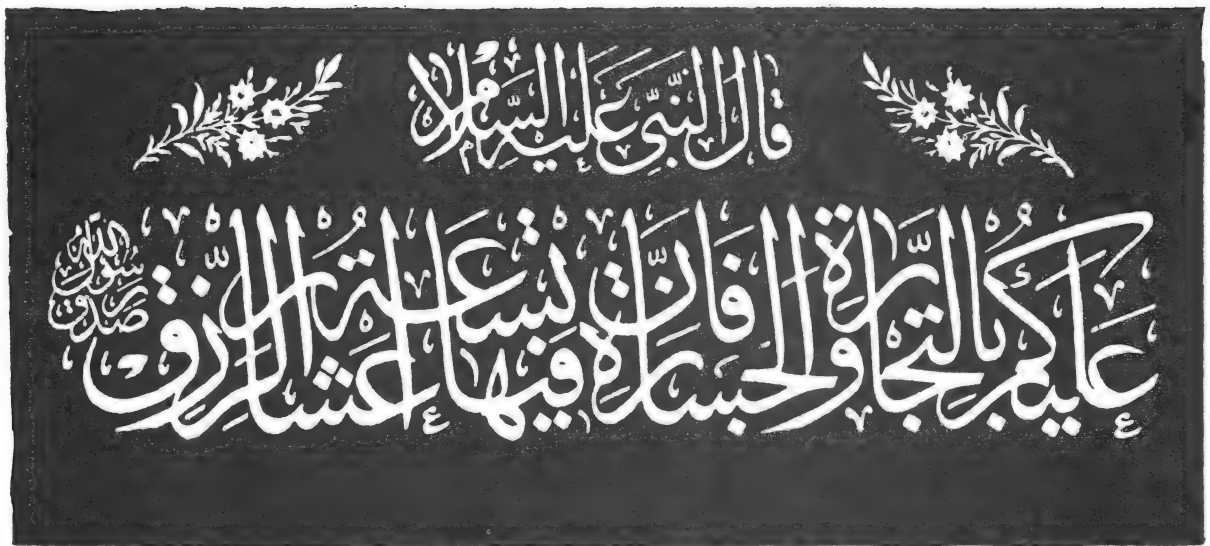 قَالَ النَّبِيّ عَلَيْهِ السَّلَام
عَلَيْكُمْ بِالتِّجَارَةِ وَالْجَسَارَةِ فَاِنَّ فِيهَا تِسْعَةُ اَعْشَارِ الرِّزْقِ
صدق رسول الله